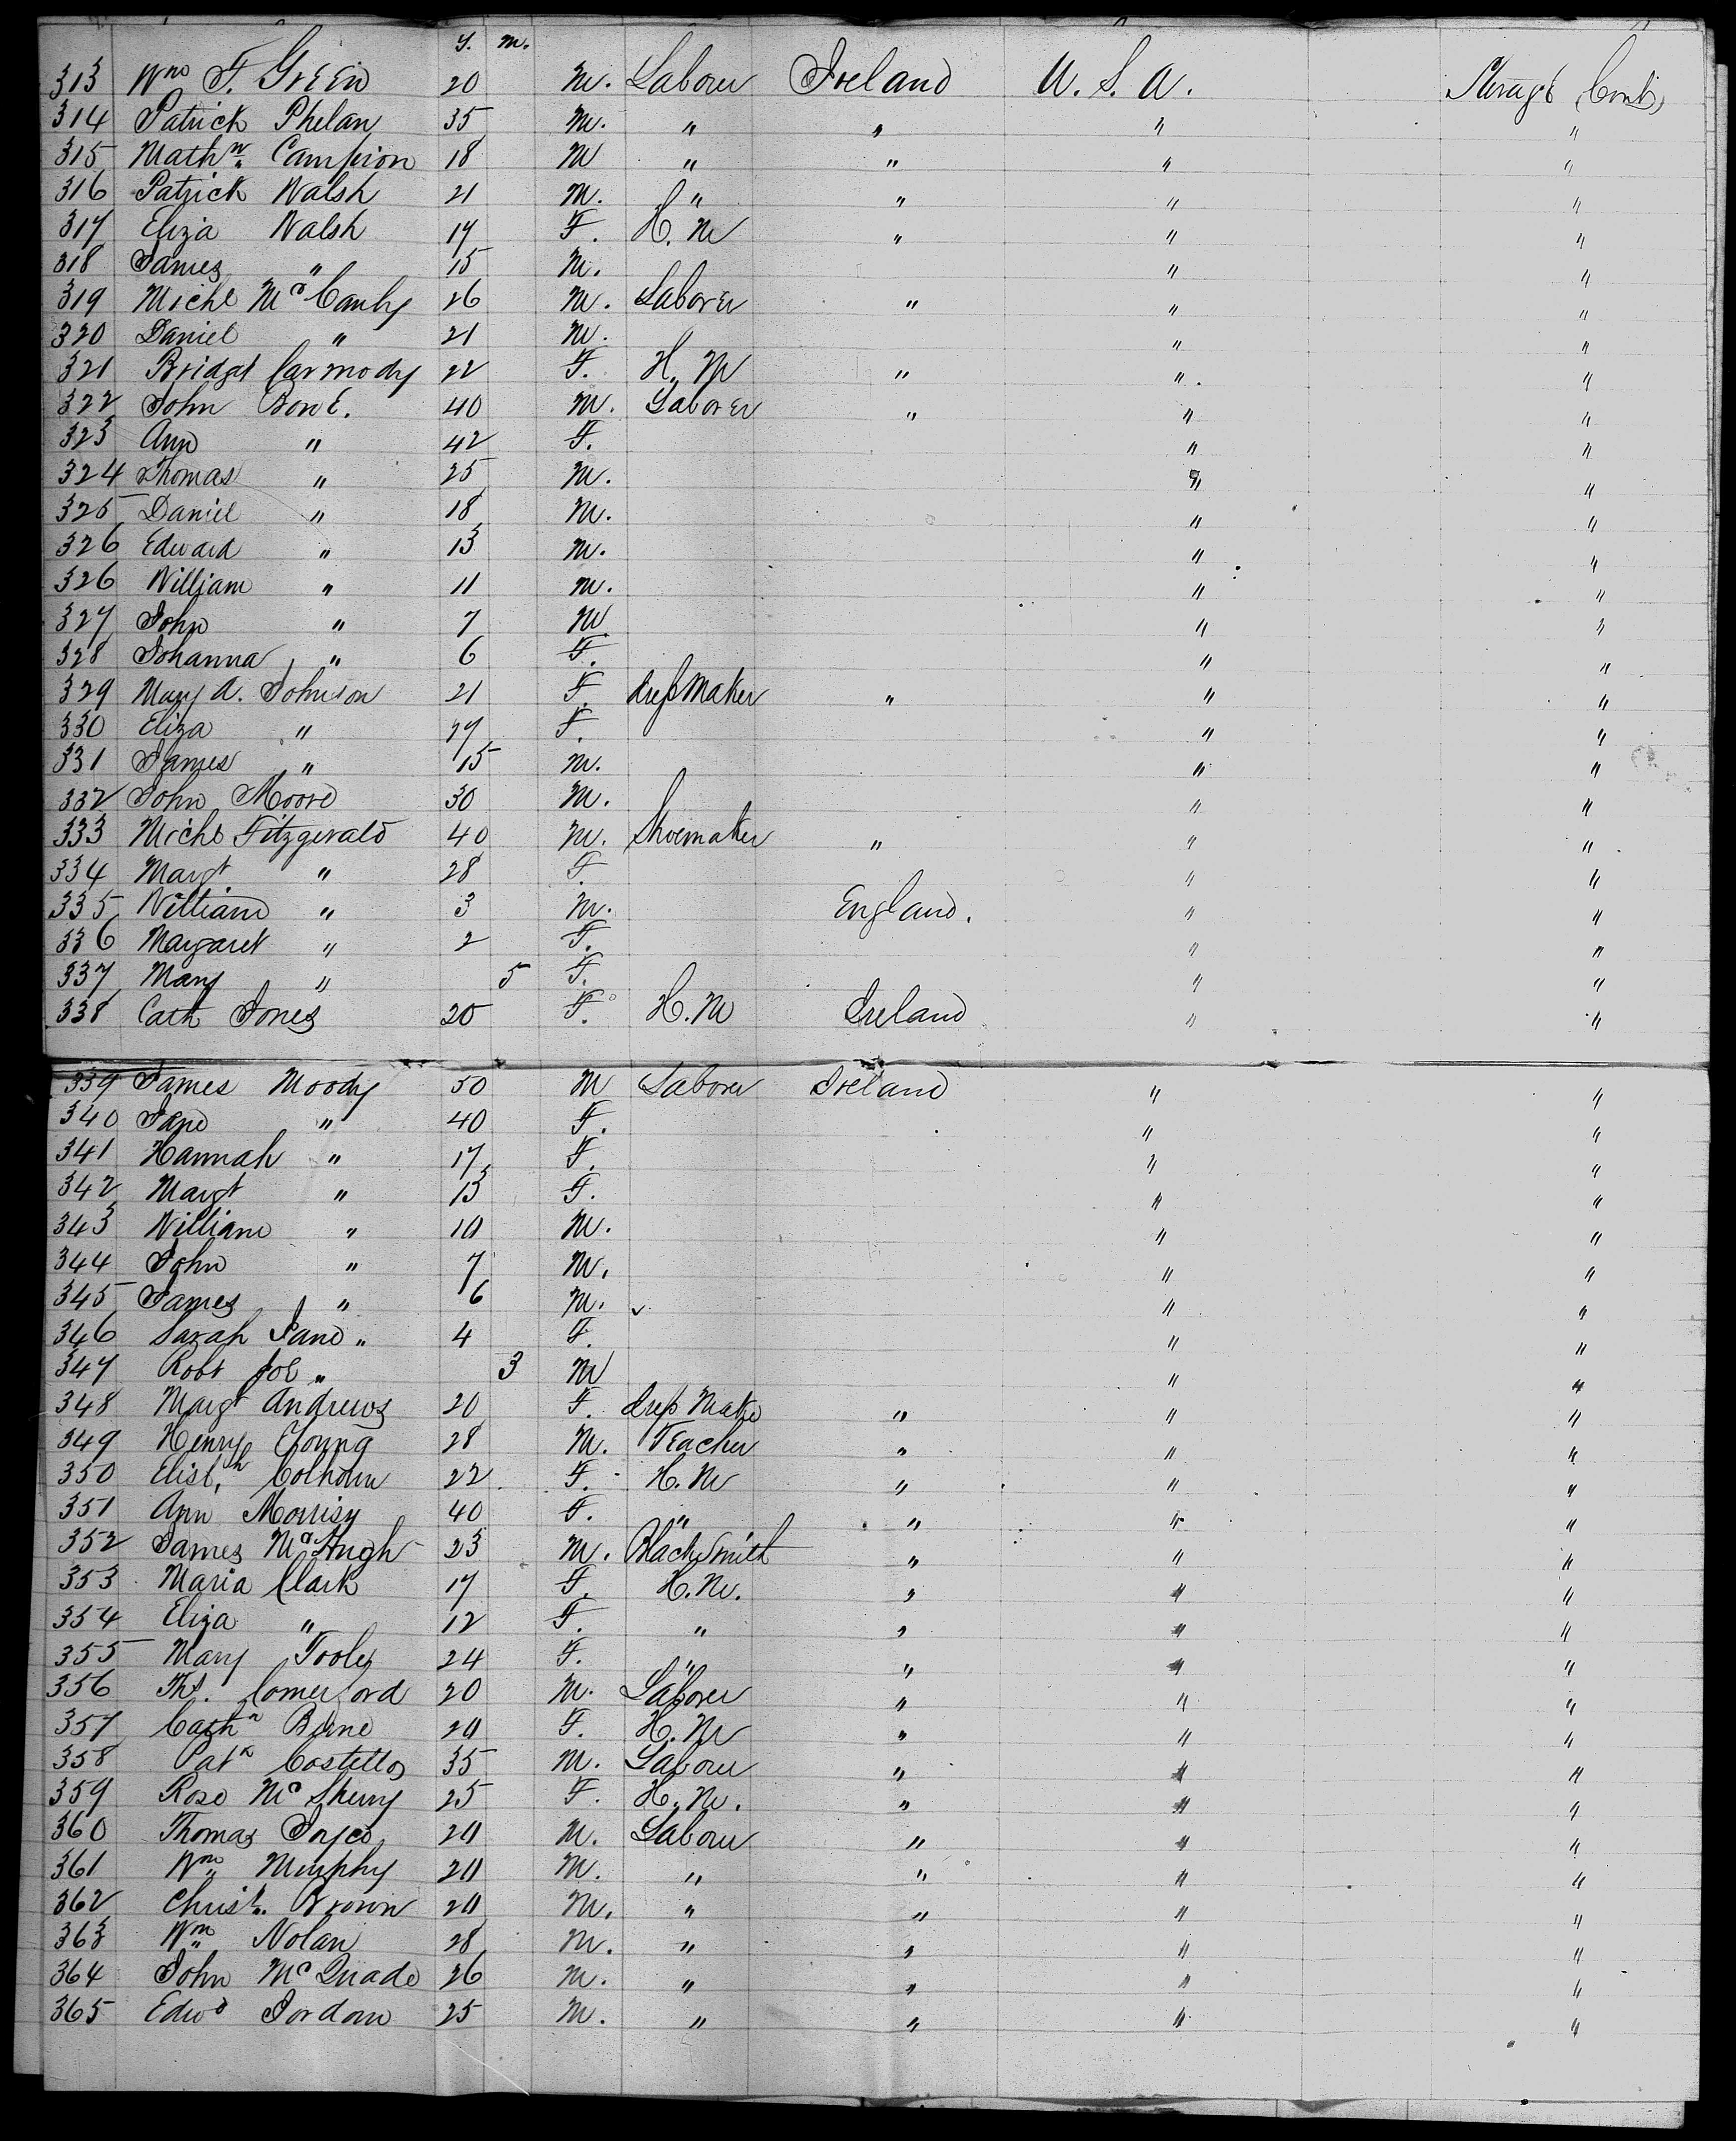 Y. M.
313 Wm F. Green 20 M. Laborer Ireland U. S. A. Steerage
314 Patrick Phelan 35 M. " " " "
315 Mathw. Campion 18 M " " " "
316 Patrick Walsh 21 M. " " " "
317 Eliza Walsh 17 F. H. M " " "
318 James " 15 M. " "
319 Michl 26 M. Laborer " " "
320 Daniel " 21 M. " "
321 Bridget Carmody 22 F. H. M " " "
322 John Bowe. 40 M. Laborer " " "
323 Ann " 42 F. " "
324 Thomas " 25 M. " "
325 Daniel " 18 M. " "
326 Edward " 13 M. " "
326 William " 11 M. " "
327 John " 7 M " "
328 Johanna " 6 F. " "
329 Mary A. Johnson 21 F. dressmaker " " "
330 Eliza " F. " "
331 James " 15 M. " "
332 John Moore 30 M. " "
333 Michl Fitzgerald 40 M. Shoemaker " " "
334 Margt " 28 F. " "
335 William " 3 M. England. " "
336 Margaret " 2 F. " "
337 Mary " 5 F. " "
338 Cath Jones 20 F. H. M Ireland " "
339 James Moody 50 M Laborer Ireland " "
340 Jane " 40 F. " "
341 Hannah " 17 F. " "
342 Margt " 13 F. " "
343 William " 10 M. " "
344 John " 7 M. " "
345 James " 6 M. " "
346 Sarah Jane " 4 F. " "
347 Robt Joe " 3 M " "
348 Margt Andrews 20 F. dress Maker " " "
349 Henry Young 28 M. Teacher " " "
350 Elisbh Colhoun 22 F. H. M " " "
351 Ann Morrisy 40 F. " " " "
352 James McHugh 23 M. BlackSmith " " "
353 Maria Clark 17 F. H. M. " " "
354 Eliza " 12 F. " " " "
355 Mary Tooley 24 F. " " " "
356 Ths. Comerford 20 M. Laborer " " "
357 Cathn Birne 20 F. H. M " " "
358 Patk Costello 35 M. Laborer " " "
359 Rose McSherry 25 F. H. M. " " "
360 Thomas Joyce 20 M. Laborer " " "
361 Wm Murphy 20 M. " " " "
362 Christr. Brown 20 M. " " " "
363 Wm Nolan 28 M. " " " "
364 John McQuade 26 M. " " " "
365 Edwd Jordan 25 M. " " " "